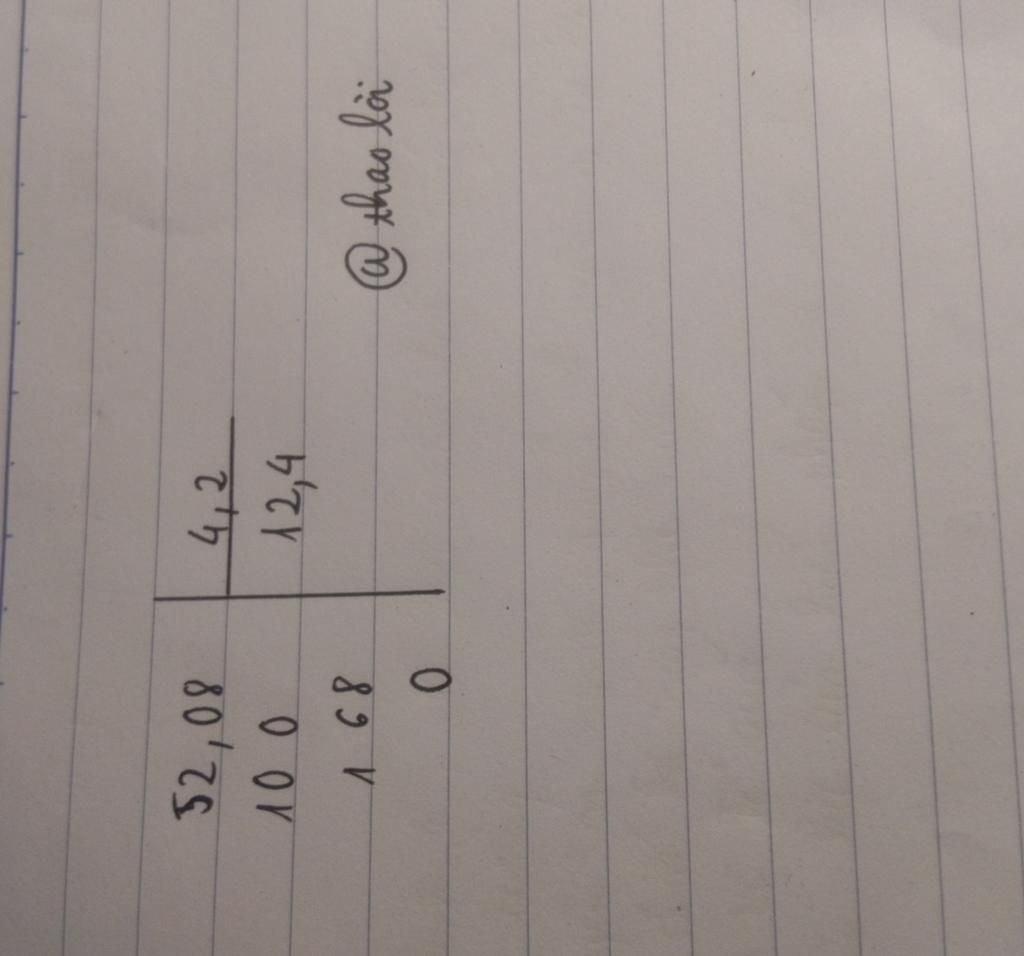 52,08 4,2
10 0 12,4
1 68
0
@ thao lòi